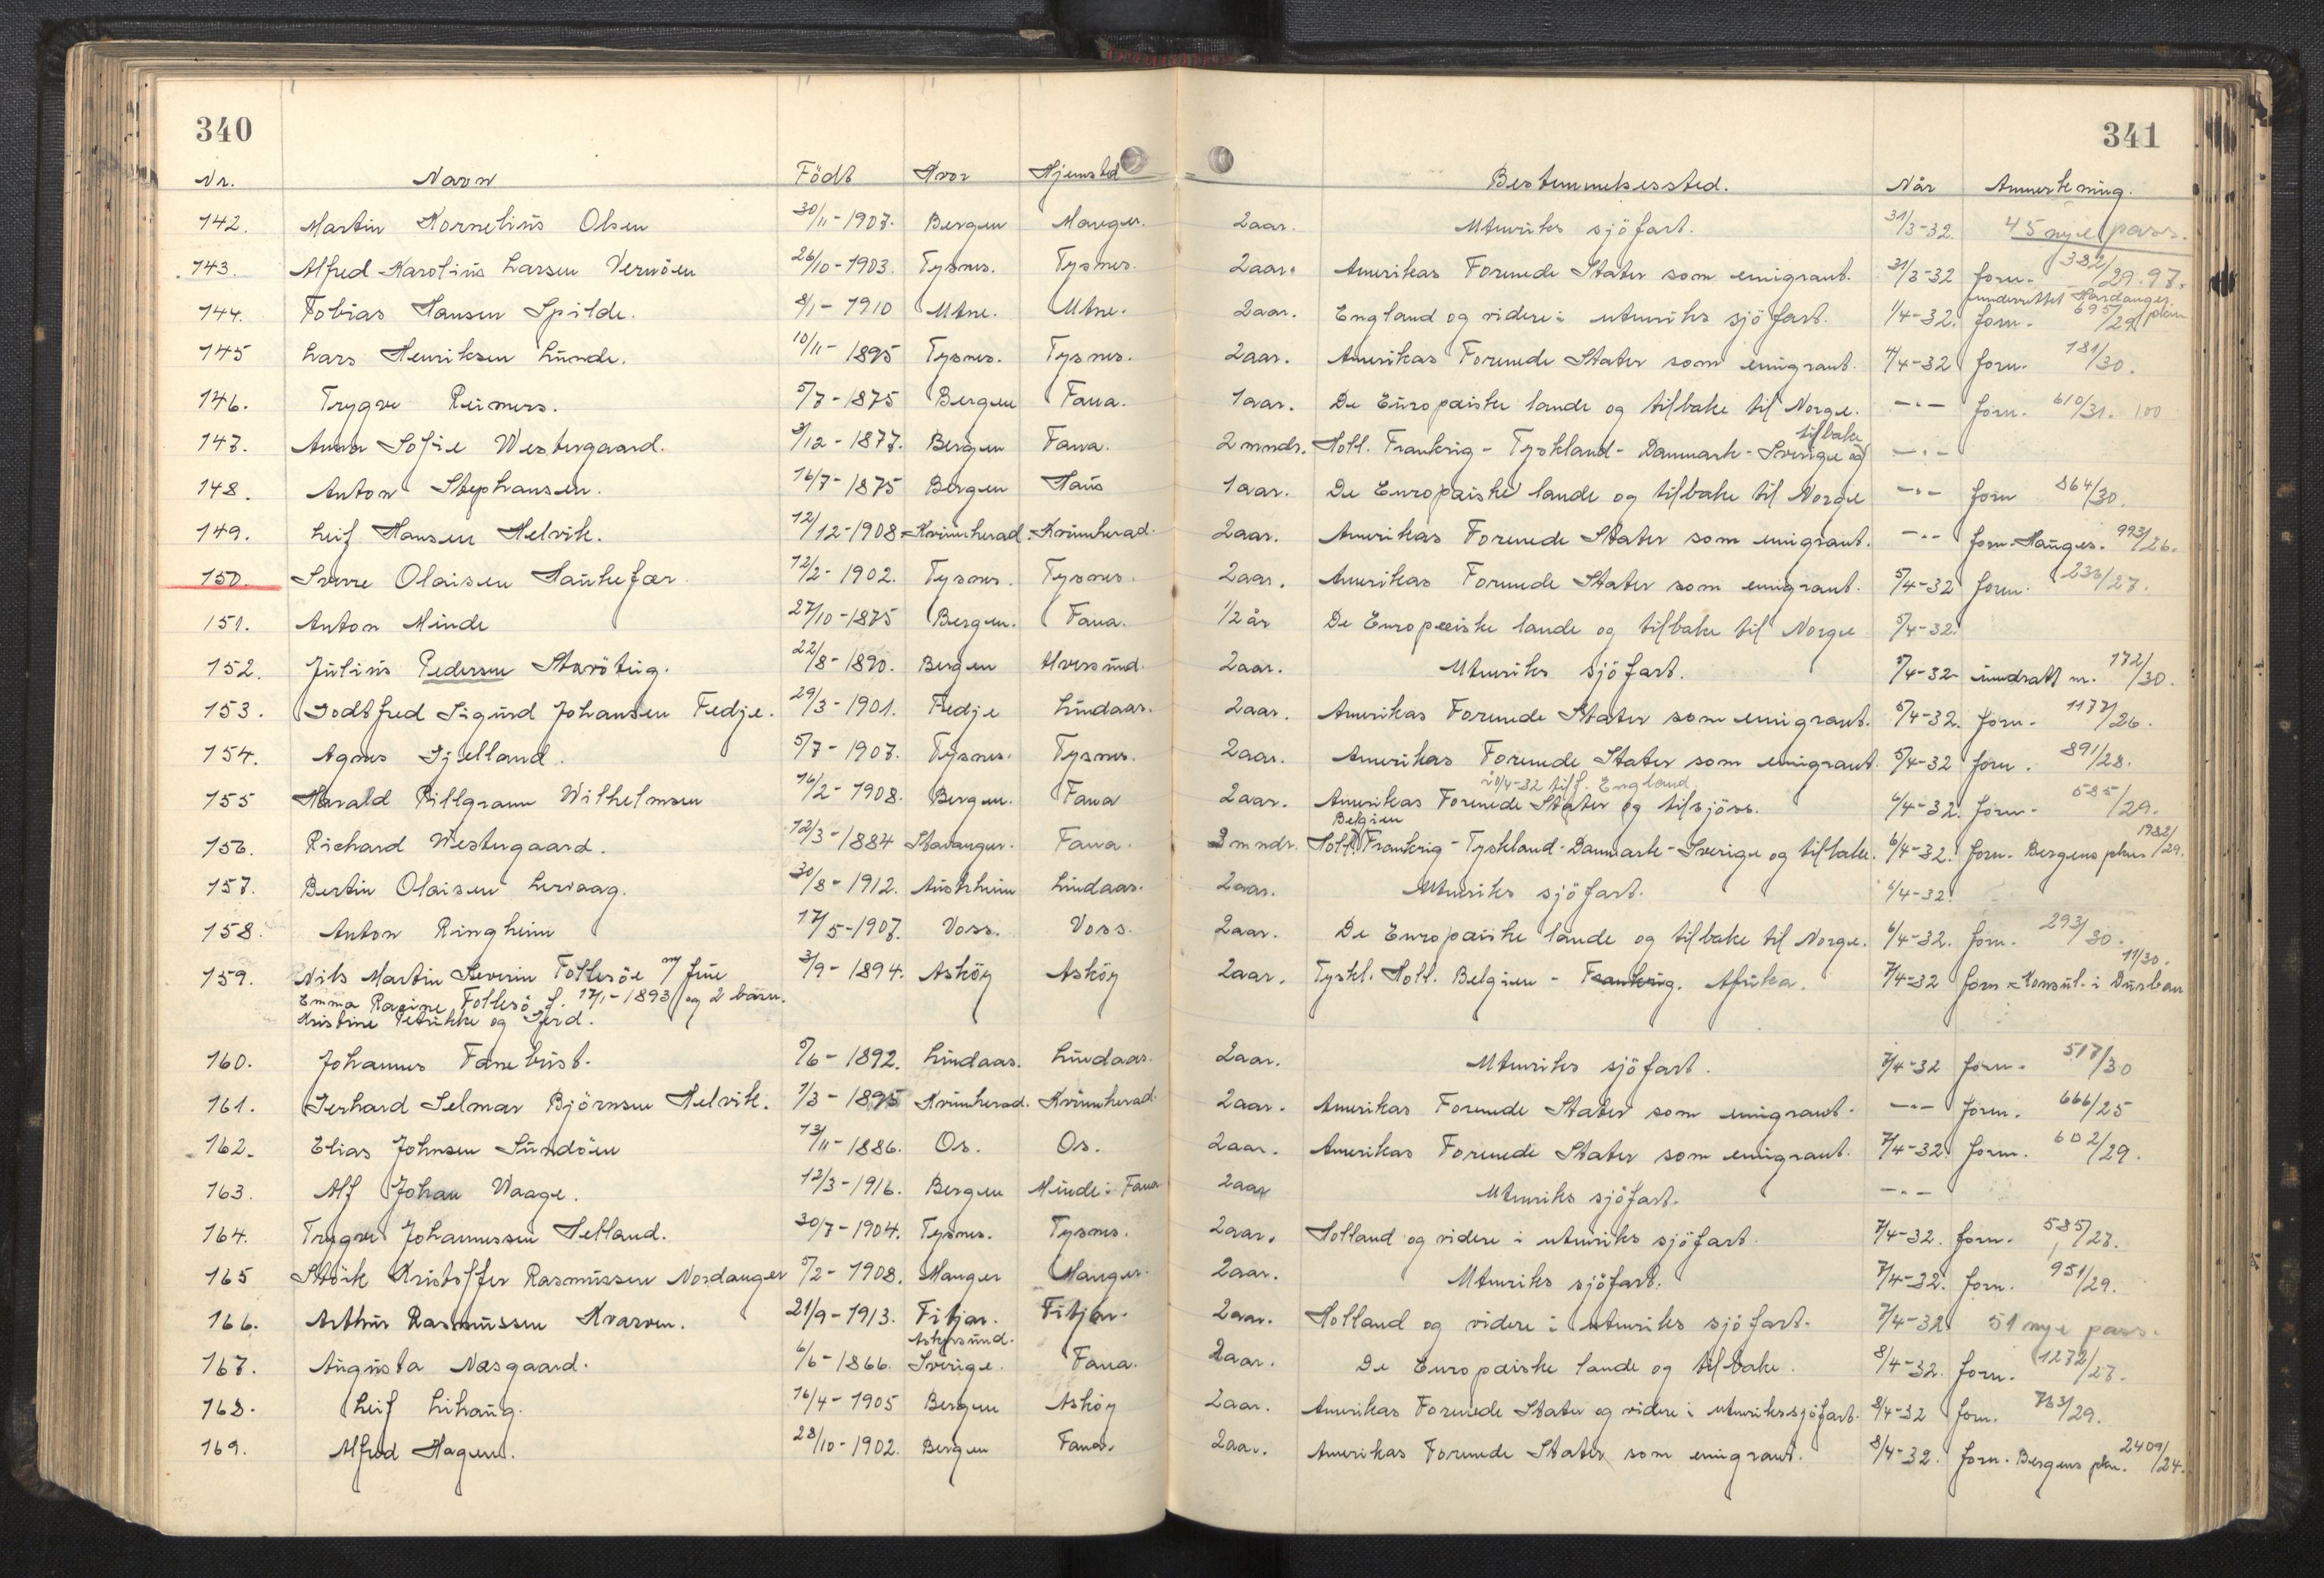 340
341
Nr. Navn Födt Hvor Hjemsted Bestemmelsessted. Når Anmerkning.
142. Martin Kornelius Olsen 30/11-1907. Bergen Manger. 2aar. Utenriks sjöfart. 31/3-32. 45 nye pass.
143. Alfred Karolius Larsen Vernöen 26/10-1903. Tysnes. Tysnes. 2aar. Amerikas Forenede Stater som emigrant. 31/3-32 forn. 382/29.97.
underrettet Hardanger
144. Tobias Hansen Spilde. 8/1-1910 Utne. Utne. 2aar. England og videre i utenriks sjöfart. 1/4-32. forn. 695/29 pkm
145 Lars Henriksen Lunde. 10/11-1895 Tysnes. Tysnes. 2aar. Amerikas Forenede Stater som emigrant. 4/4-32 forn. 181/30.
146. Trygve Reimers. 5/7-1875 Bergen Fana. 1aar. De Europæiske lande og tilbake til Norge. -"- forn. 610/31. 100
tilbake
147. Anna Sofie Westergaard. 3/12-1877. Bergen Fana. 2 mndr. Holl. Frankrig - Tyskland - Danmark - Sverige og -"-
148. Anton Stephansen. 16/7-1875 Bergen Haus 1aar. De Europæiske lande og tilbake til Norge -"- forn 864/30.
149. Leif Hansen Helvik. 12/12-1908 Kvinnherad. Kvinnherad. 2aar. Amerikas Forenede Stater som emigrant. -"- forn. Hauges. 993/26.
150. Sverre Olaisen Haukefær. 12/2-1902. Tysnes. Tysnes. 2aar. Amerikas Forenede Stater som emigrant. 5/4-32 forn. 236/27.
151. Anton Minde 27/10-1875 Bergen. Fana. 1/2 år De Europæiske lande og tilbake til Norge 5/4-32.
152. Julius Pedersen Skröting. 22/8-1890. Bergen Alversund. 2aar. Utenriks sjöfart. 5/4-32 inndratt nr. 172/30.
153. Godtfred Sigurd Johansen Fedje. 29/3-1901. Fedje Lindaas. 2aar. Amerikas Forenede Stater som emigrant. 5/4-32. forn. 1177/26.
154. Agnes Gjelland. 5/7-1907. Tysnes. Tysnes. 2aar. Amerikas Forenede Stater som emigrant. 5/4-32 forn. 891/28.
20/4-32 tilf. England
155 Harald Pillgram Wilhelmsen 16/2-1908. Bergen. Fana 2aar. Amerikas Forenede Stater og tilsjöss. 6/4-32. forn. 585/29.
Belgien
156. Richard Westergaard. 12/3-1884 Stavanger. Fana. 3 mndr. Holl. Frankrig - Tyskland - Danmark - Sverige og tilbake. 6/4-32. forn. Bergens pkm. 1982/29.
157. Bertin Olaisen Lervaag. 30/8-1912. Austrheim Lindaas. 2aar. Utenriks sjöfart. 6/4-32.
158. Anton Ringheim 17/5-1907. Voss. Voss. 2aar. De Europæiske lande og tilbake til Norge. 6/4-32. forn. 293/30.
159. Nils Martin Severin Follesöe m/ frue 3/9-1894. Asköy Asköy 2aar. Tyskl. Holl. Belgien - Frankrig. Afrika. 7/4-32 forn Konsul. i Durban 11/30.
Emma Rasine Follesö f. 17/1-1893 og 2 barn.
Kristine Petrikke og Gerd.
160. Johannes Fanebust. 5/6-1892. Lindaas. Lindaas. 2aar. Utenriks sjöfart. 7/4-32 forn. 517/30
161. Gerhard Selmar Björnsen Helvik. 1/3-1895 Kvinnherad. Kvinnherad. 2aar. Amerikas Forenede Stater som emigrant. -"- forn. 666/25
162. Elias Johnsen Sundöen 13/11-1886. Os. Os. 2aar. Amerikas Forenede Stater som emigrant. 7/4-32 forn. 602/29.
163. Alf Johan Waage. 12/3-1916. Bergen Minde i Fana 2aar Utenriks sjöfart. -"-
164. Trygve Johannessen Helland. 30/7-1904. Tysnes. Tysnes. 2aar. Holland og videre i utenriks sjöfart. 7/4-32. forn. 585/27.
165 Störk Kristoffer Rasmussen Nordanger 5/2-1908. Manger Manger. 2aar. Utenriks sjöfart. 7/4-32. forn. 951/29.
166. Arthur Rasmussen Kvarven. 21/9-1913. Fitjar. Fitjar. 2aar. Holland og videre i utenriks sjöfart. 7/4-32 51 nye pass.
Askersund.
167. Augusta Næsgaard. 6/6-1866. Sverige. Fana. 2aar. De Europæiske lande og tilbake. 8/4-32. forn. 1272/27.
168. Leif Lihaug. 16/4-1905 Bergen Asköy 2aar. Amerikas Forenede Stater og videre i utenrikssjöfart. 8/4-32 forn. 763/29.
169. Alfred Hagen. 28/10-1902. Bergen Fana. 2aar. Amerikas Forenede Stater som emigrant. 8/4-32. forn. Bergens pkm. 2409/24.